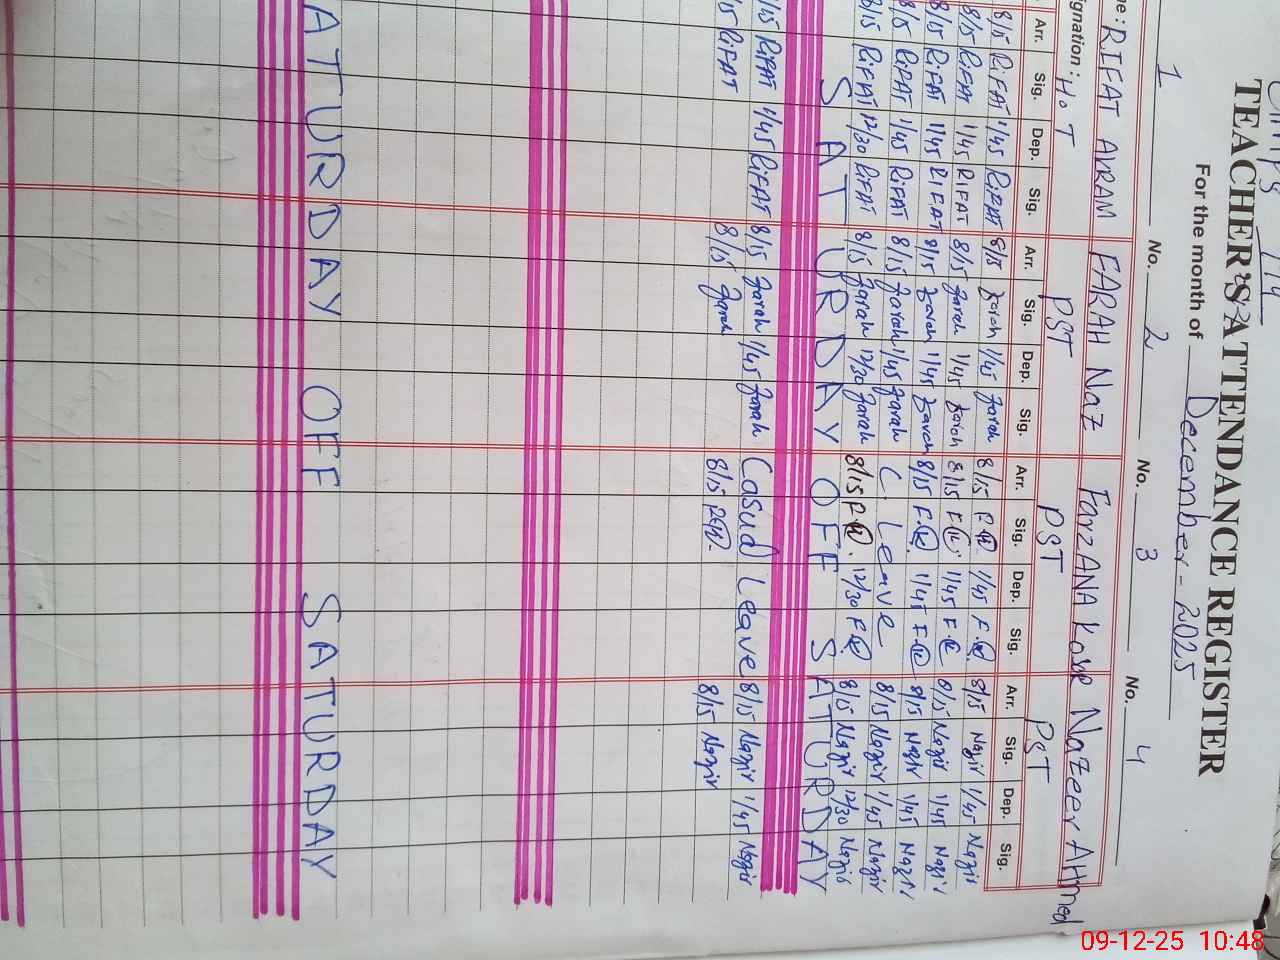 TEACHER'S ATTENDANCE REGISTER
For the month of December - 2025
1 No. 2 No. 3 No. 4
me: RIFAT AKRAM FARAH NaZ FarzANA Kosar Nazeer AHmed
signation: H.T PST PST PST
Arr. Sig. Dep. Sig. Arr. Sig. Dep. Sig. Arr. Sig. Dep. Sig. Arr. Sig. Dep. Sig.
8/15 RiFAT 1/45 RiFAT 8/15 Farah 1/45 Farah 8/15 F.K 1/45 F.K 8/15 Nazir 1/45 Nazir
8/15 RiFAT 1/45 RiFAT 8/15 Farah 1/45 Farah 8/15 F.K 1/45 F.K 8/15 Nazir 1/45 Nazir
8/15 RiFAT 1/45 RIFAT 8/15 Farah 1/45 Farah 8/15 F.K 1/45 F.K 8/15 Nazir 1/45 Nazir
8/15 RiFAT 1/45 RiFAT 8/15 Farah 1/45 Farah C. Leave 8/15 Nazir 1/45 Nazir
8/15 RiFAT 12/30 RiFAT 8/15 Farah 12/30 Farah 8/15 F.K 12/30 F.K 8/15 Nazir 12/30 Nazir
SATURDAY OFF SATURDAY
8/15 RiFAT 1/45 RiFAT 8/15 Farah 1/45 Farah Casual Leave 8/15 Nazir 1/45 Nazir
8/15 RiFAT 8/15 Farah 8/15 8/15 Nazir
ATURDAY OFF SATURDAY
09-12-25 10:48